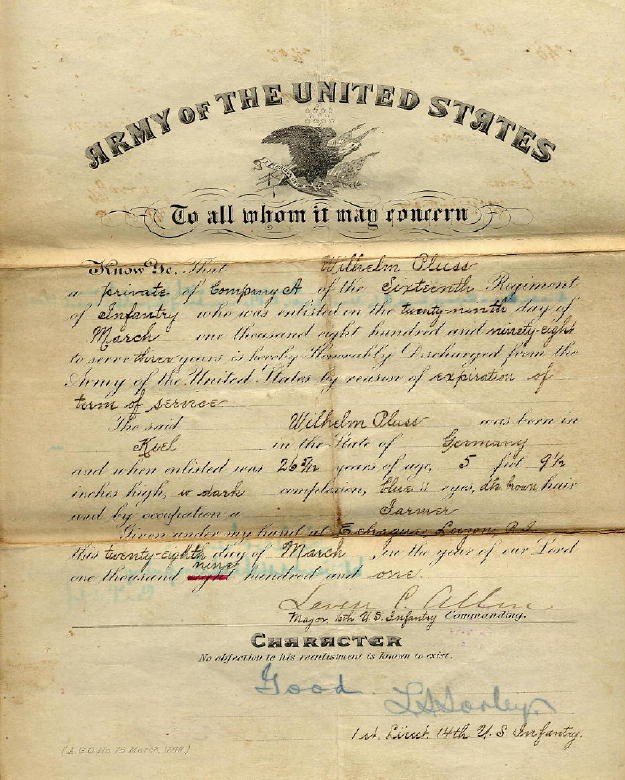 ARMY OF THE UNITED STATES
To all whom it may concern
Know Ye, That Wilhelm Pluss
a private of Company A of the Sixteenth Regiment
of Infantry who was enlisted on the twenty-ninth day of
March one thousand eight hundred and ninety-eight
to serve three years is hereby Honorably Discharged from the
Army of the United States by reason of expiration of
term of service
The said Wilhelm Pluss was born in
Kiel in the State of Germany
and when enlisted was 26 5/12 years of age, 5 feet 9½
inches high, dark complexion, blue eyes, dk brown hair
and by occupation a Farmer
Given under my hand at Echague Luzon P.I.
this twenty-eighth day of March in the year of our Lord
one thousand eight nine hundred and one.
Major 16th U.S. Infantry Commanding.
CHARACTER
No objection to his reenlistment is known to exist.
Good.
1st. Lieut. 14th U. S Infantry.
(A.G.O. No 75 March,